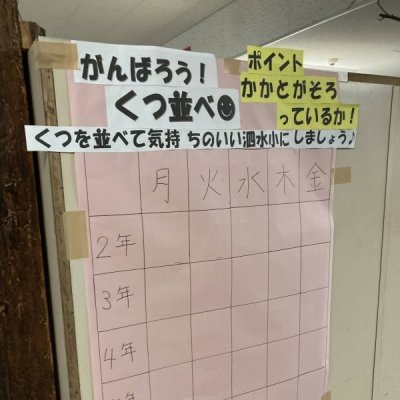 がんばろう！
くつ並べ☻
ポイント
かかとがそろ
っているか！
くつを並べて気持ちのいい泗水小にしましょう♪
月 火 水 木 金
2年
3年
4年